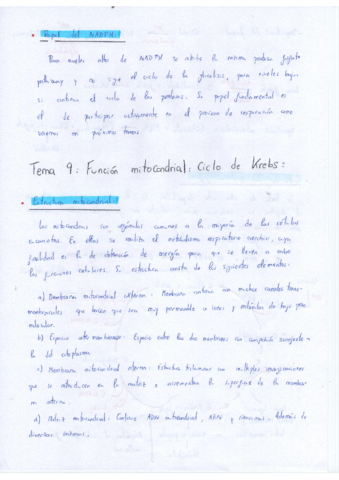 Papel del NADPH:
Para niveles altos de NADPH se inhibe la misma pentosa fosfato
pathway y no sigue el ciclo de la glucolisis, para niveles bajos
si continua el ciclo de las pentosas. Su papel fundamental es
el de participar activamente en el proceso de respiración como
veremos mi próximos temas.
Tema 9: Función mitocondrial: Ciclo de Krebs:
Estructura mitocondrial:
Las mitocondrias son orgánulos comunes a la mayoría de las células
eucariotas. En ellas se realiza el metabolismo respiratorio aeróbico, cuya
finalidad es la de obtención de energía para que se lleven a cabo
las funciones celulares. Su estructura consta de los siguientes elementos:
a) Membrana mitocondrial externa: Membrana contiene un muchos canales trans-
membranales que hacen que sea muy permeable a iones y moléculas de bajo peso
molecular.
b) Espacio intermembranoso: Espacio entre las dos membranas con composición semejante
a la del citoplasma
c) Membrana mitocondrial interna: Estructura trilaminar con múltiples invaginaciones
que se introducen en la matriz e incrementan la superficie de la membra-
na interna.
d) Matriz mitocondrial: Contiene ADN mitocondrial, ARN y ribosomas. Además de
diversas enzimas.